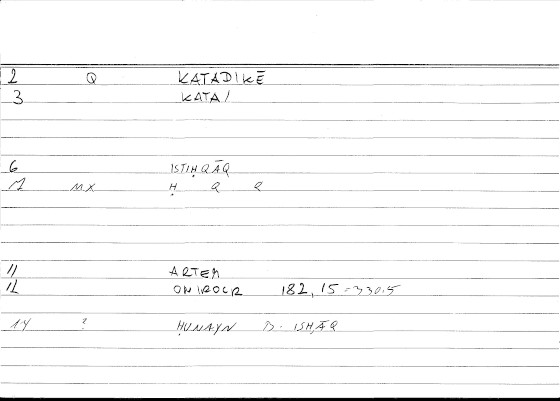 2 Q KATADIKĒ
3 KATA/
6 ISTIḤQĀQ
MX Ḥ Q Q
11 ARTEM
12 ONIROCR 182, 15=330.5
14 ? ḤUNAYN B. ISḤĀQ